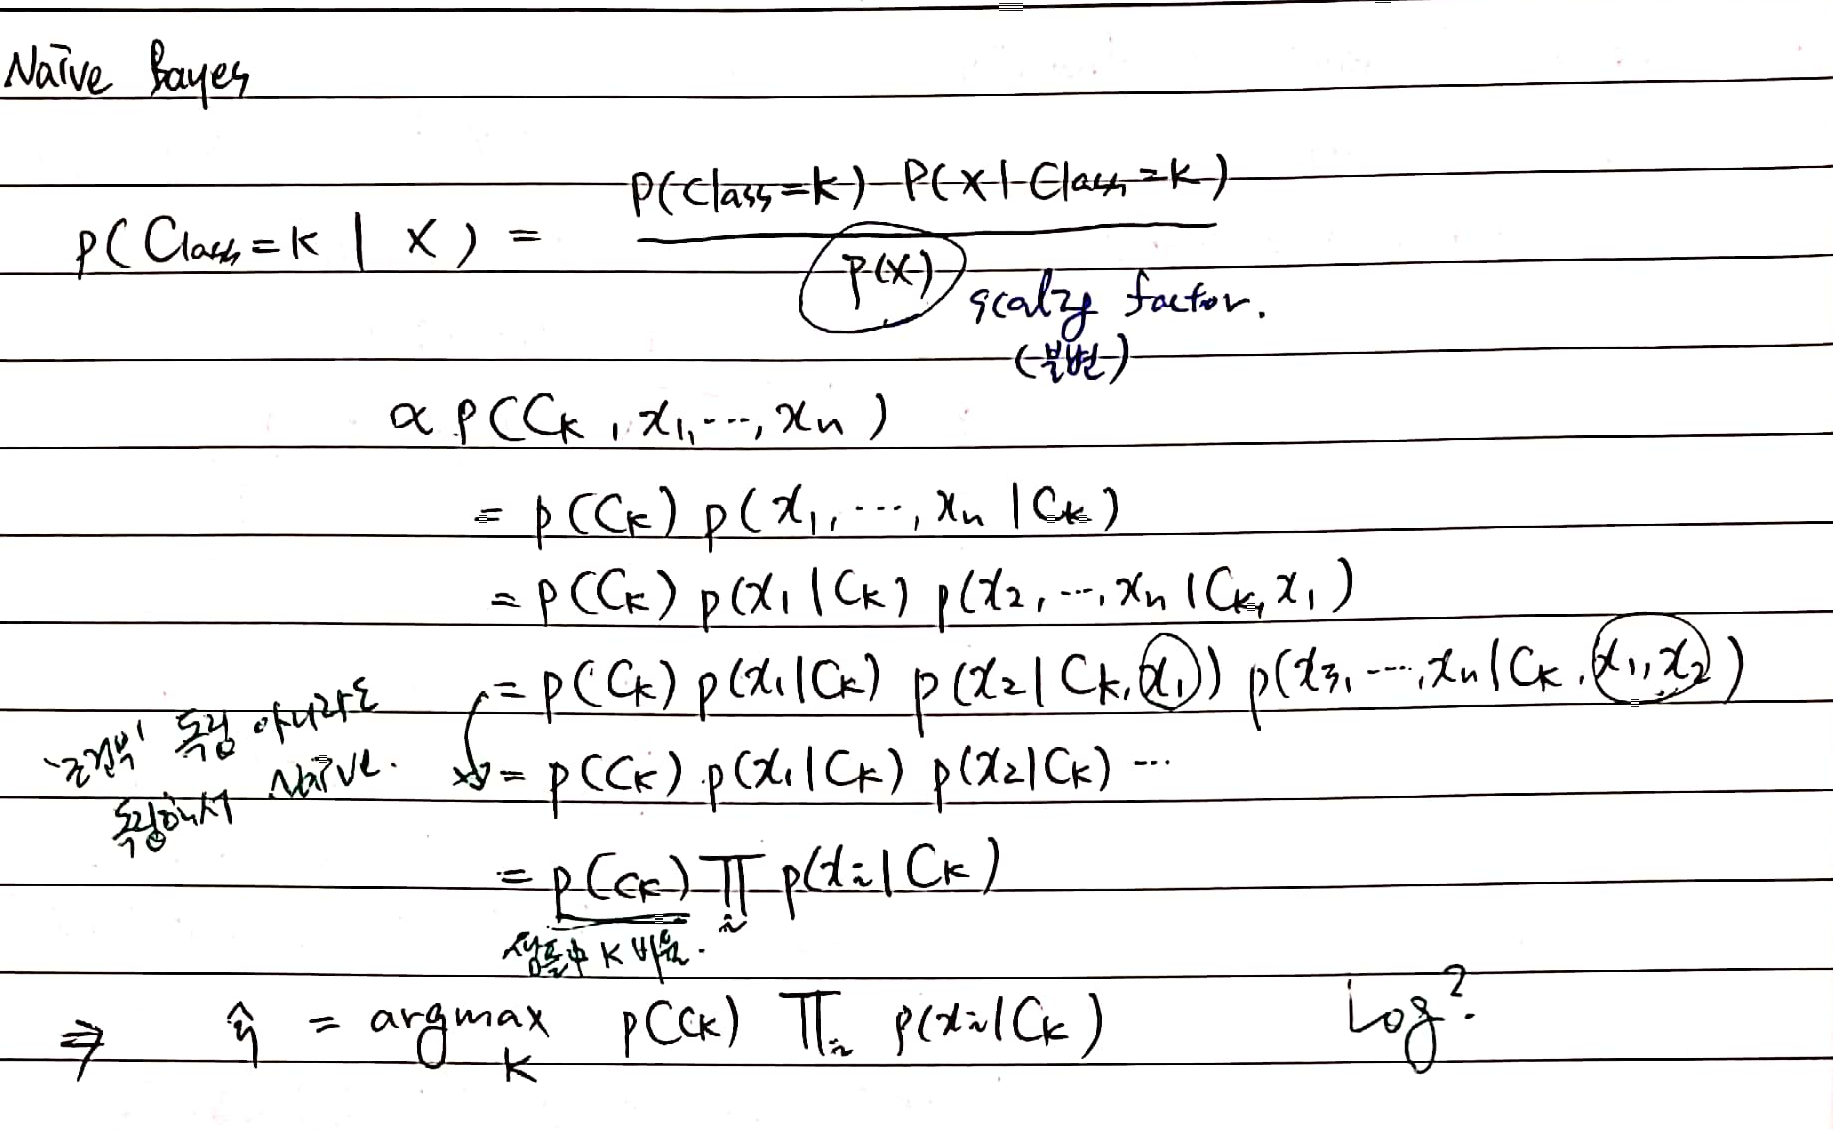 Naïve Bayes
P(Class=k) P(X|Class=k)
p(Class=k | X) =
P(X)
scaling factor.
(불변)
∝ p(Ck, x1, ..., xn)
= p(Ck) p(x1, ..., xn | Ck)
= p(Ck) p(x1|Ck) p(x2, ..., xn | Ck, x1)
= p(Ck) p(x1|Ck) p(x2|Ck, x1) p(x3, ..., xn | Ck, x1, x2)
조건부 독립 아니라도
= p(Ck) p(x1|Ck) p(x2|Ck) ...
Naïve.
= p(Ck) ∏i p(xi|Ck)
샘플中 k 비율.
⇒ ŷ = argmax p(Ck) ∏i p(xi|Ck) Log?
k